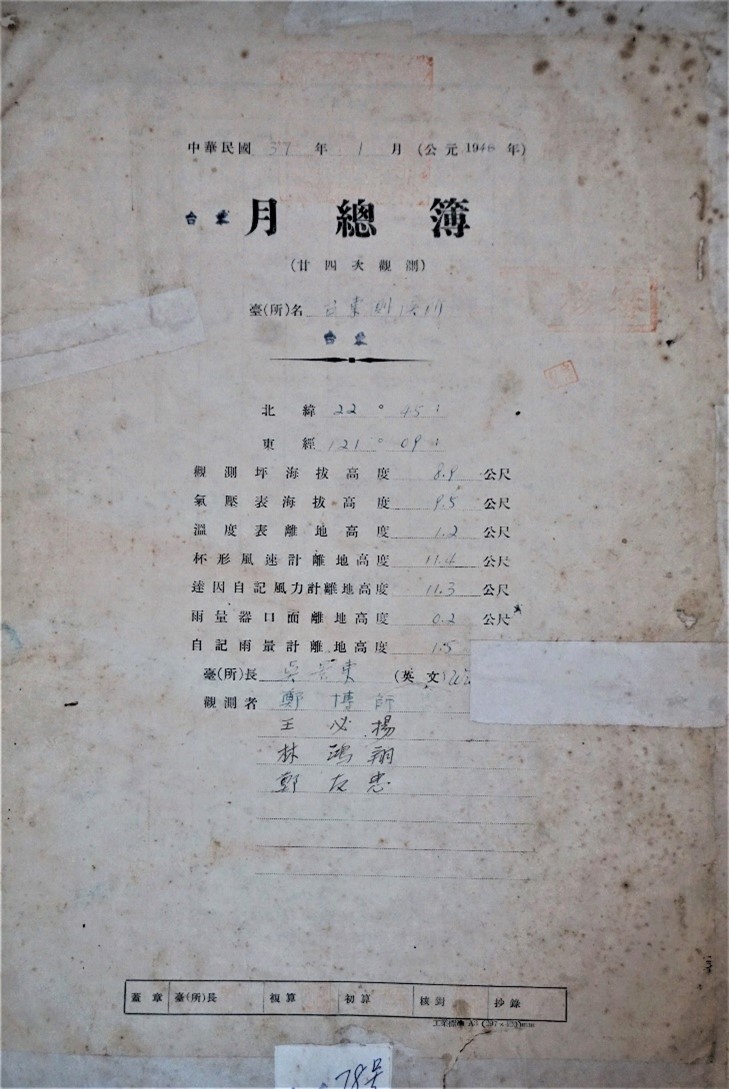 中華民國 37 年 1 月 (公元 1948 年)
台東 月總簿
(廿四次觀測)
臺(所)名 台東測候所
台東
北緯 22° 45′
東經 121° 09′
觀測坪海拔高度 8.9 公尺
氣壓表海拔高度 9.5 公尺
溫度表離地高度 1.2 公尺
杯形風速計離地高度 11.4 公尺
達因自記風力計離地高度 11.3 公尺
雨量器口面離地高度 0.2 公尺
自記雨量計離地高度 1.5
臺(所)長 吳 東 (英文)
觀測者 鄭博師
王必揚
林鴻翔
鄭友忠
蓋章 臺(所)長 複算 初算 核對 抄錄
工業標準 A3 (297×420)mm
78号